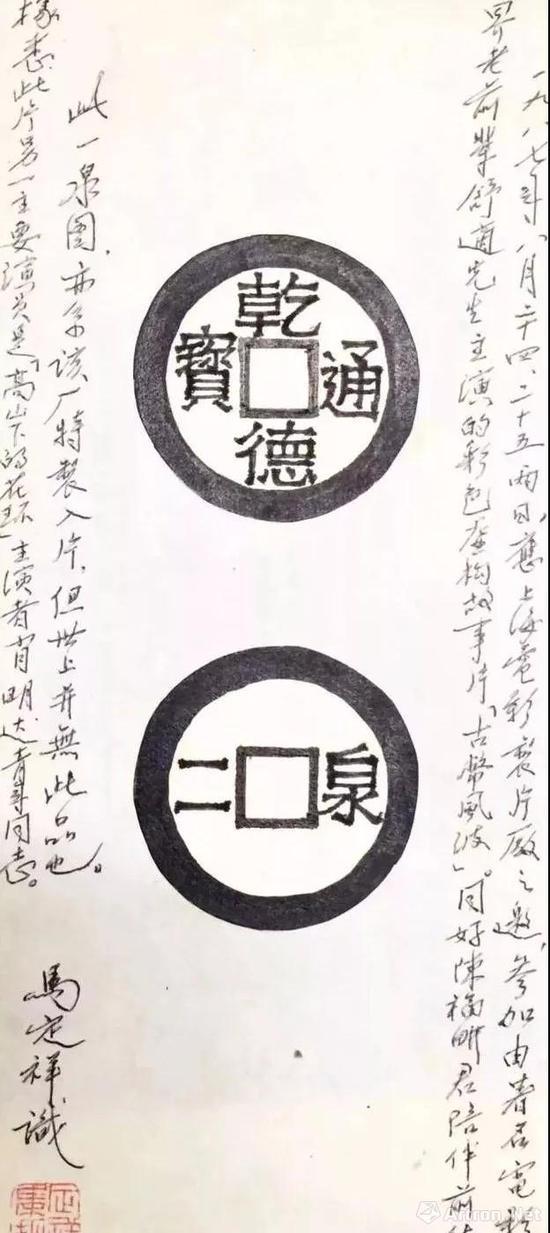 一九八七年八月二十四、二十五兩日,應上海電影製片廠之邀,參加由著名電影
界老前輩舒適先生主演的彩色虛構故事片「古幣風波」。同好陳福耕君陪伴前往
乾德通寶
泉二
此一泉圖,亦系該厂特製入片,但世上并無此品也。
據悉此片另一主要演員是「高山下的花环」主演者肖明達青年同志。
馬定祥識
Artron.Net